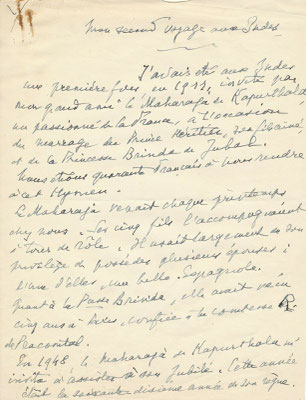 Mon second voyage aux Indes
J'avais été aux Indes
une première fois, en 1911, invité par
mon grand ami le Maharaja de Kapurthala
un passionné de la France, à l'occasion
du mariage du Prince Héritier, son fils aîné
et de la Princesse Brinda de Jubal.
Nous étions quarante français à nous rendre
à cet Hymen.
Le Maharaja venait chaque printemps
chez nous. Ses cinq fils l'accompagnaient
à tour de rôle. Il usait largement de son
privilège de posséder plusieurs épouses;
l'une d'elles, une belle Espagnole.
Quant à la Psse Brinda, elle avait vécu
cinq ans à Paris, confiée à la comtesse
de Pracomtal.
En 1948 le maharaja de Kapurthala m'
invita à assister à son Jubilé. Cette année
était la soixante dixième année de son règne.